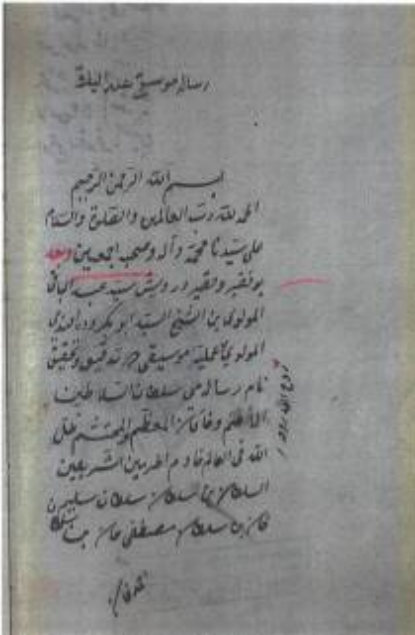 رساله موسیقی عبد الباقی
بسم الله الرحمن الرحیم
الحمد لله رب العالمین والصلوة والسلام
علی سیدنا محمد وآله وصحبه اجمعین وبعد
بو فقیر وحقیر درویش سید عبد الباقی
المولوی بن الشیخ السید ابو بکر دده افندی
المولوی عملیه موسیقی تدقیق وتحقیق
نام رساله می سلطان السلاطین
الاعظم وخاقان المعظم والمحتشم ظل
الله فی العالم خادم الحرمین الشریفین
السلطان بن السلطان سلطان سلیم
خان بن سلطان مصطفی خان
روح الله روحه